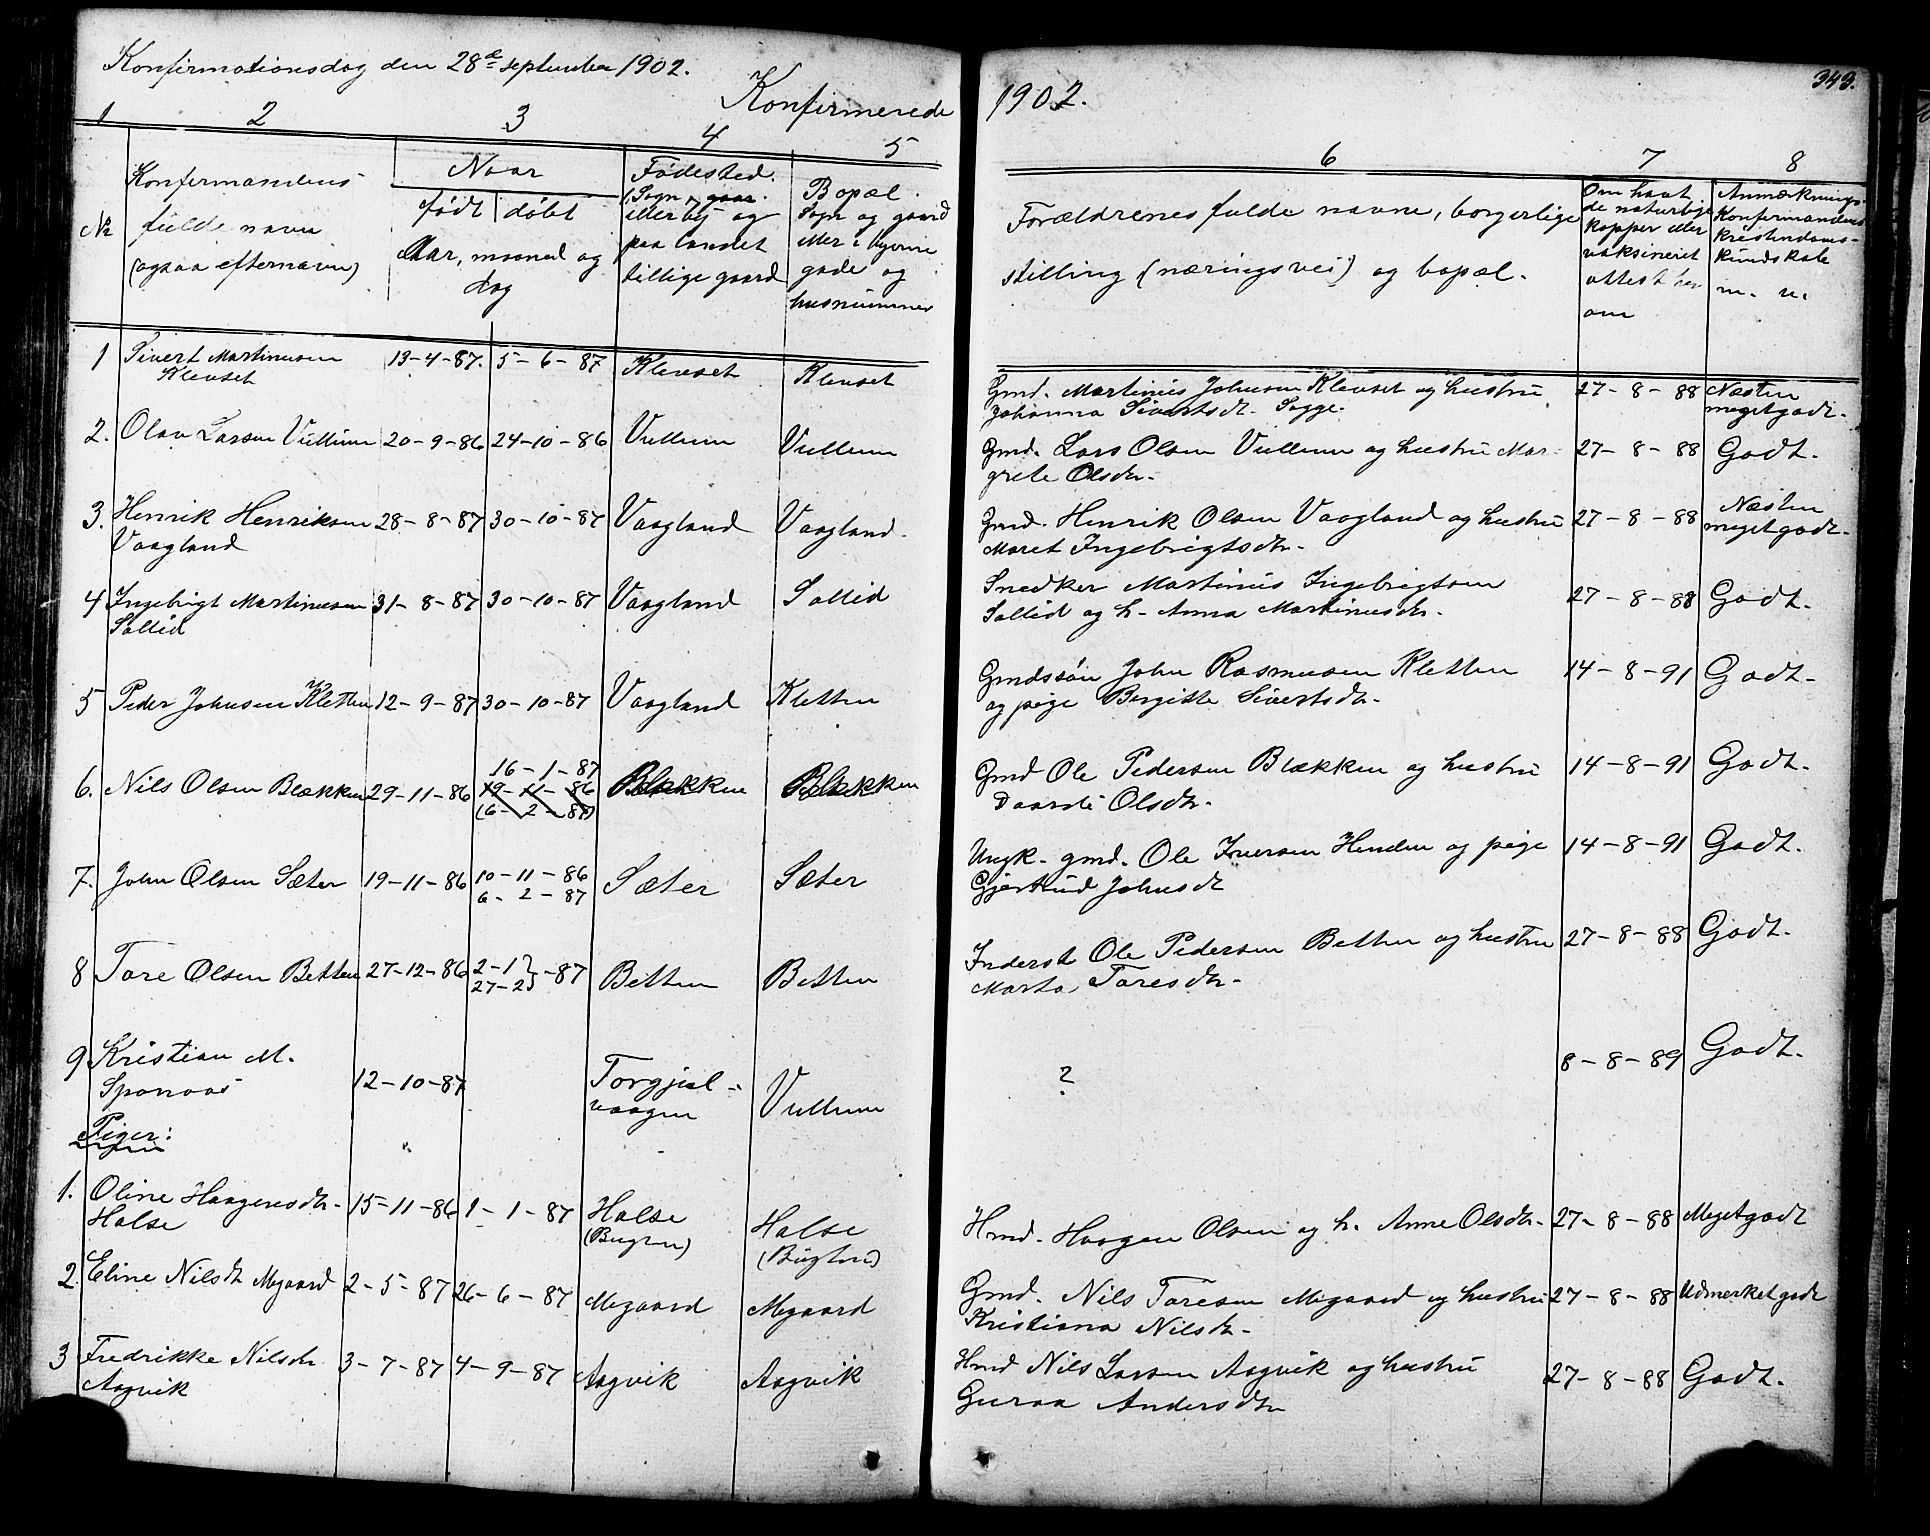 Konfirmationsdag den 28de september 1902.
Konfirmerede
1902.
343.
1 2 3 4 5 6 7 8
No
Konfirmandens
fulde navn
(ogsaa efternavn)
Naar
født døbt
Aar, maaned og
dag
Fødested.
(Sogn, gaar.
eller by og
paa landet
tillige gaard
Bopæl.
Sogn og gaard
eller i byerne
gade og
husnummer
Forældrenes fulde navne, borgerlige
stilling (næringsvei) og bopæl.
Om havt
de naturlige
kopper eller
vaksineret
attest
om
Anmærknings-
Konfirmandens
kristendoms-
kundskab
m. v.
1 Sivert Martinusen 13-4-87. 5-6-87 Klevset Klevset Gmd. Martinus Johnsen Klevset og hustru 27-8-88 Næsten
Klevset Johanna Sivertsdt. Sogge. megetgodt.
2. Olav Larsen Vullum 20-9-86 24-10-86 Vullum Vullum Gmd. Lars Olsen Vullum og hustru Mar- 27-8-88 Godt.
grete Olsdtr.
3. Henrik Henriksen 28-8-87 30-10-87 Vaagland Vaagland. Gmd. Henrik Olsen Vaagland og hustru 27-8-88 Næsten
Vaagland Maret Ingebrigtsdtr. megetgodt.
4 Ingebrigt Martinusen 31-8-87 30-10-87 Vaagland Sollid Snedker Martinus Ingebrigtsen 27-8-88 Godt.
Sollid Sollid og h. Anna Martinusdtr.
5 Peder Johnsen Kletten 12-9-87 30-10-87 Vaagland Kletten Gmdssøn John Rasmusen Kletten 14-8-91 Godt.
og pige Bergitte Sivertsdtr.
6. Nils Olsen Blækken 29-11-86 16-1-87 Blækken Blækken Gmd Ole Pedersen Blækken og hustru 14-8-91 Godt.
19-11-86
(6-2-87) Daarde Olsdtr.
7. John Olsen Sæter 19-11-86 10-11-86 Sæter Sæter Ungk. gmd. Ole Iversen Henden og pige 14-8-91 Godt.
6-2-87 Gjertrud Johnsdt
8 Tore Olsen Betten 27-12-86 2-1 } -87 Betten Betten Inderst Ole Pedersen Betten og hustru 27-8-88 Godt.
27-2 Marta Toresdtr.
9 Kristian M. 12-10-87 Torgjul- Vullum ? 8-8-89 Godt.
Sponaas vaagen
Piger:
1. Oline Haagensdtr. 15-11-86 1-1-87 Halse Halse Hmd. Haagen Olsen og h. Anne Olsdtr. 27-8-88 Megetgodt
Halse (Bugten) (Bugten)
2. Eline Nilsdt Megaard 2-5-87 26-6-87 Megaard Megaard Gmd. Nils Toresen Megaard og hustru 27-8-88 Udmerket godt
Kristiana Nilsdtr.
3 Fredrikke Nilsdtr. 3-7-87 4-9-87 Aagvik Aagvik Hmd Nils Larsen Aagvik og hustru 27-8-88 Godt.
Aagvik Guraa Andersdtr